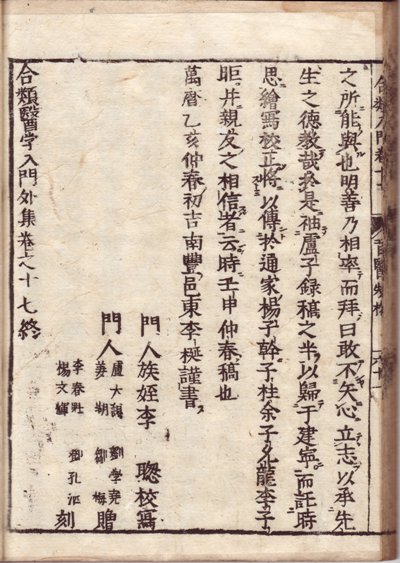 之所能與也明善乃相率而拜曰敢不矢心立志以承先
生之德教哉於是袖盧子録稿之半以歸于建寧而託時
思繪寫校正將以傳於通家楊子幹子桂余子化龍李子
昛并親友之相信者云時壬申仲春稿也
萬曆乙亥仲春初吉南豐邑東李梴謹書
門人族姪李 聰校寫
門人
盧大謨 劉學堯
姜朔 鄒梅
贈
李春 鄧孔
楊文輝
刻
合類醫學入門外集卷之十七終